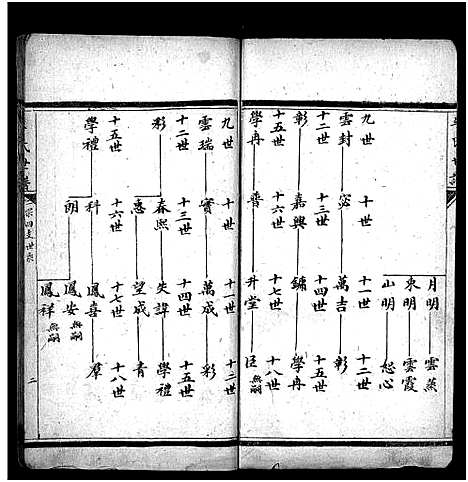 月明 雲蒸
東明 雲霞
山明 恕心
九世 十世 十一世 十二世
雲封 宓 萬吉 彰
十二世 十三世 十四世 十五世
彰 嘉興 鏽 學冉
十五世 十六世 十七世 十八世
學冉 普 升堂 臣 無嗣
九世 十世 十一世 十二世
雲瑞 實 萬成 彩
十二世 十三世 十四世 十五世
彩 春熙 失諱 學禮
惠 望成 青
十五世 十六世 十七世 十八世
學禮 科 鳳喜 羣
朗 鳳安 無嗣
鳳祥 無嗣
二